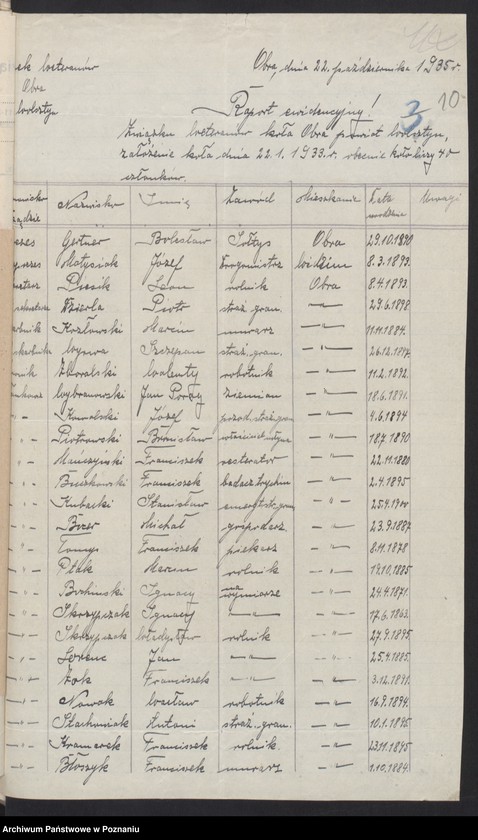 ek weteranów
Obra, dnia 22. października 1935 r.
Obra
Wolsztyn
3 10
Raport ewidencyjny!
Związku weteranów koła Obra powiat Wolsztyn,
założenie koła dnia 22.1.1933.r. obecnie koło liczy 40
członków.
Nazwisko Imię Zawód Mieszkanie Data Uwagi
Gertner Bolesław Sołtys Obra 29.10.1890
Matysiak Józef Drogomistrz Widzim 8.3.1893.
Ptasik Leon rolnik Obra 8.4.1893.
Piotr straż gran. -"- 29.6.1898
Kozłowski Marcin murarz -"- 11.11.1884.
Szczepan straż. gran. -"- 26.12.1897.
Walenty robotnik -"- 11.2.1892.
Wybranowski Jan ziemian -"- 18.6.1891.
- " - Kowalski Józef przod. straż. gran. -"- 4.6.1894
- " - Piotrowski Bronisław właściciel młyna -"- 18.7.1890
- " - Mańczyński Franciszek restorator -"- 22.11.1880
- " - Buszkowski Franciszek -"- 2.4.1895
- " - Kubacki Stanisław -"- 25.4.1900
- " - Michał gospodarz -"- 23.9.1887
- " - Tomys Franciszek piekarz -"- 8.11.1878
- " - Ptak Marcin rolnik -"- 19.10.1885
- " - Ignacy na wymiarze -"- 24.4.1871.
- " - Skrzypczak Ignacy -"- -"- 17.6.1863.
- " - Skrzypczak Władysław rolnik -"- 27.9.1895
- " - Lorenc Jan -"- -"- 25.4.1885.
- " - Żok Franciszek -"- -"- 3.12.1891.
- " - Nowak Wacław robotnik -"- 16.9.1894.
- " - Stachowiak Antoni straż. gran. -"- 10.1.1895
- " - Kramarek Franciszek rolnik. -"- 23.11.1895
- " - Błoszyk Franciszek murarz -"- 1.10.1884.
Archiwum Państwowe w Poznaniu